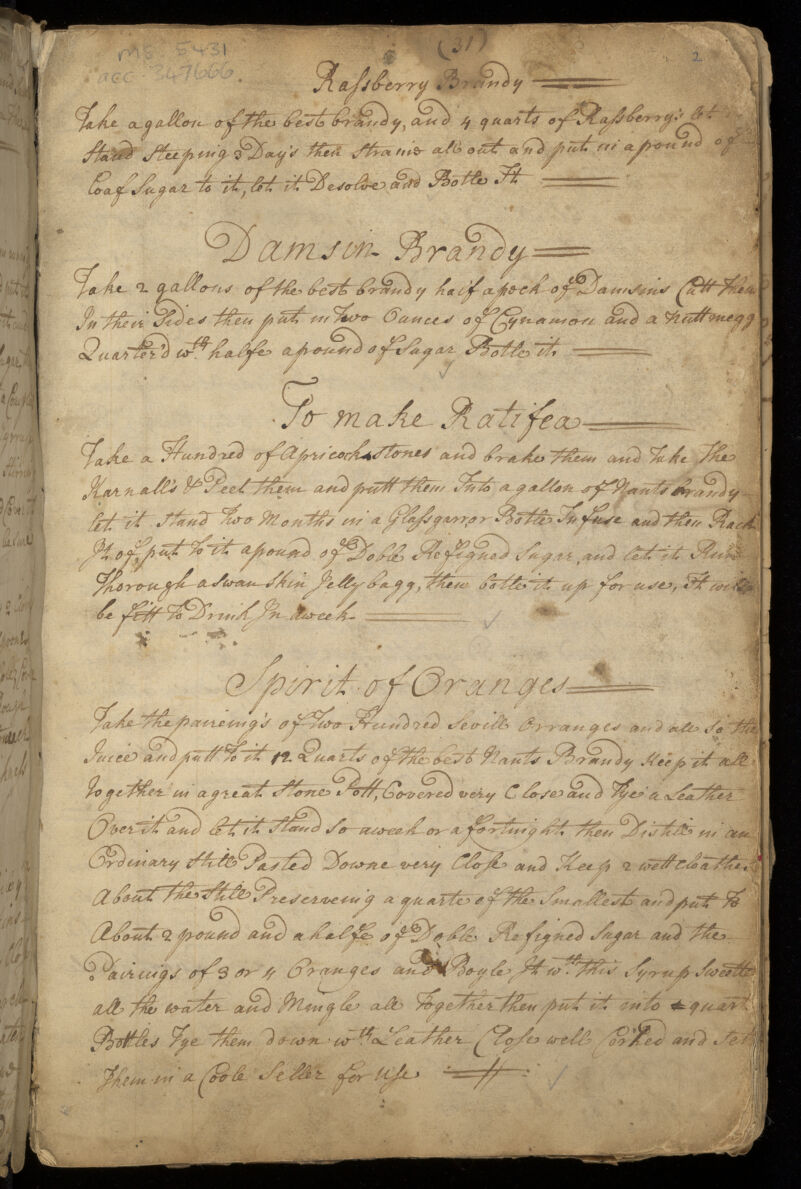 MS. 5431
acc. 347666.
(31)
2
Raſsberry Brandy
Take a gallon of the best brandy, and 4 quarts of Raſsberry's let
Stand Steeping 3 Day's then straine all out and put in a pound of
Loaf Sugar to it, let it Desolve and Botle It
Damsin Brandy
Take 2 gallons of the best brandy half a peck of Damsins Cutt them
In their Sides then put in Two Ounces of Cynamon and a nuttmegg
Quarter'd wth. halfe a pound of Sugar Botle it
To make Ratifea
Take a Hundred of Apricock stones and brake them and Take The
Karnall's & Peel them and putt them Into a gallon of Nants brandy
let it Stand Two Months in a Glaſs garr or Botle Infuse and then Rack
It of, put to it a pound of Doble Refigned Sugar, and let it Run
Thorough a swan skin Jelly bagg, then botle it up for use, It will
be fitt To Drink In a week
Spirit of Oranges
Take the paireing's of Two Hundred Sevill Orranges and all so the
Juice and putt to it 12 Quarts of the best Nants Brandy Keep it all
together in a great Stone Pott, Covered very Close and Tye a Leather
Over it and let it Stand So a week or a fortnight then Distill in an
Ordinary Still Pasted Downe very Close and Keep 2 wett Cloathes
About the Still Preserveing a quarte of the Smallest and put To
About 2 pound and a halfe of Doble Refigned Sugar and the
Pairings of 3 or 4 Oranges and Boyle It wth. this Syrup Sweetten
all the water and Mingle all Together then put it into quart
Bottles Tye them down wth. Leather Close well Corked and Set
Them in a Coole Seller for Use